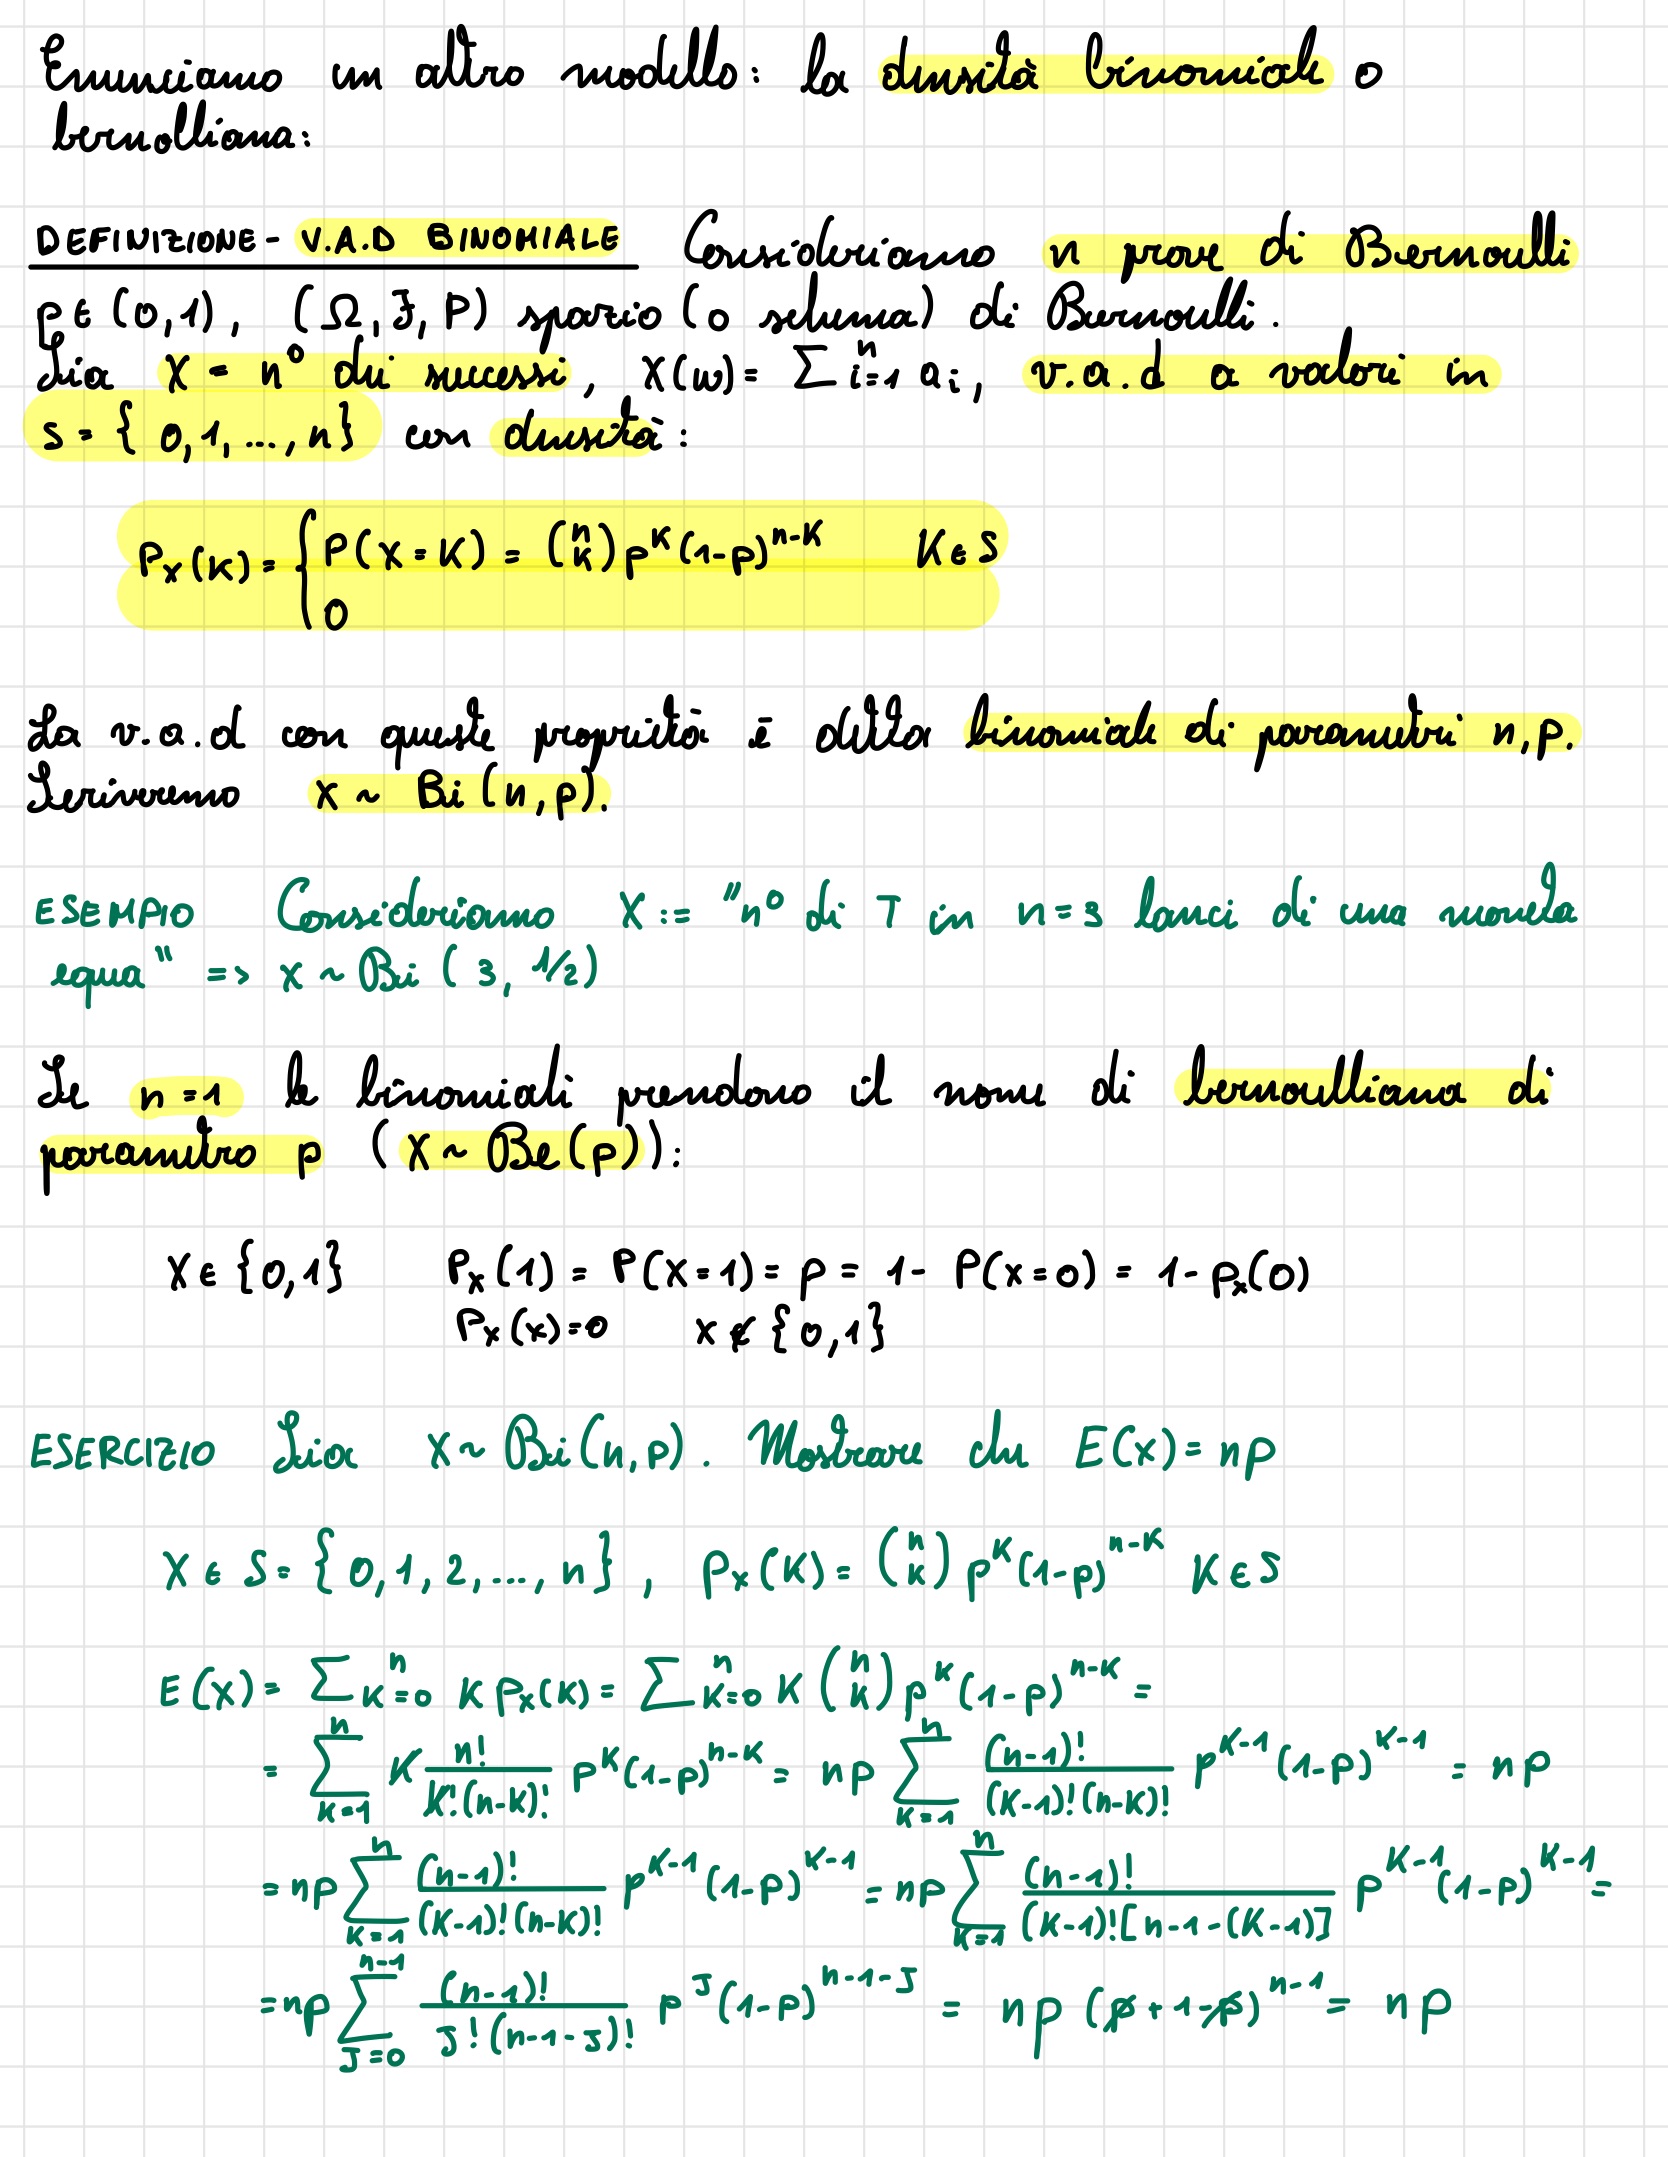 Enunciamo un altro modello: la densità binomiale o
bernolliana:
DEFINIZIONE - V.A.D BINOMIALE Consideriamo n prove di Bernoulli
p ∈ (0,1), (Ω, F, P) spazio (o schema) di Bernoulli.
Sia X = n° dei successi, X(ω) = ∑ i=1 n ai, v.a.d a valori in
S = { 0,1,...,n} con densità:
Px(K) = { P(X=K) = (n k) p^K (1-p)^n-K K ∈ S
0
La v.a.d con queste proprietà è detta binomiale di parametri n,p.
Scriveremo X ~ Bi (n,p).
ESEMPIO Consideriamo X := "n° di T in n=3 lanci di una moneta
equa" => X ~ Bi ( 3, 1/2)
Se n=1 le binomiali prendono il nome di bernoulliana di
parametro p ( X ~ Be(p)):
X ∈ {0,1} Px(1) = P(X=1) = p = 1- P(X=0) = 1-px(0)
Px(x)=0 x ∉ {0,1}
ESERCIZIO Sia X ~ Bi(n,p). Mostrare che E(X) = np
X ∈ S = { 0,1,2,...,n}, Px(K) = (n k) p^K (1-p)^n-K K ∈ S
E(X) = ∑ K=0 n K px(K) = ∑ K=0 n K (n k) p^K (1-p)^n-K =
= ∑ K=1 n K n!/K!(n-K)! p^K (1-p)^n-K = np ∑ K=1 n (n-1)!/(K-1)!(n-K)! p^K-1 (1-p)^K-1 = np
= np ∑ K=1 n (n-1)!/(K-1)!(n-K)! p^K-1 (1-p)^K-1 = np ∑ K=1 n (n-1)!/(K-1)![n-1-(K-1)] p^K-1 (1-p)^K-1 =
= np ∑ J=0 n-1 (n-1)!/J!(n-1-J)! p^J (1-p)^n-1-J = np (p+1-p)^n-1 = np